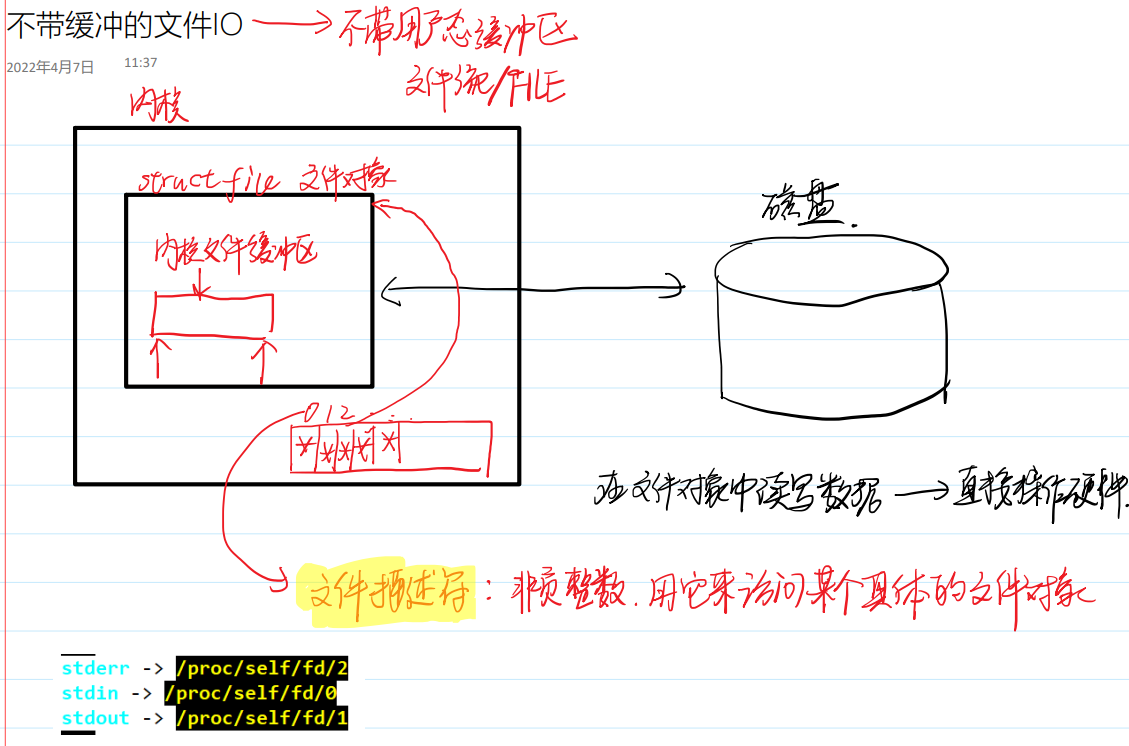 不带缓冲的文件IO → 不带用户态缓冲区
2022年4月7日 11:37
文件流/FILE
内核
struct file 文件对象
磁盘.
内核文件缓冲区
0 1 2 ....
在文件对象中读写数据 → 直接操作硬件.
文件描述符：非负整数.用它来访问某个具体的文件对象
stderr -> /proc/self/fd/2
stdin -> /proc/self/fd/0
stdout -> /proc/self/fd/1